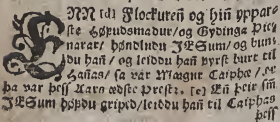 ENN [d] Flockuren̄ og hin̄ yppar-
ste Høfudsmadur/ og Gydinga Þie-
narar/ høndludu JESum/ og bun-
du han̄/ og leiddu han̄ fyrst burt til
Han̄as/ sa var Mægur Caiphæ/ er
þa var þess Aars ædste Prestr. [e] En̄ þeir sm̄
JESum høfdu gripid/ leiddu han̄ til Caiphas
þess